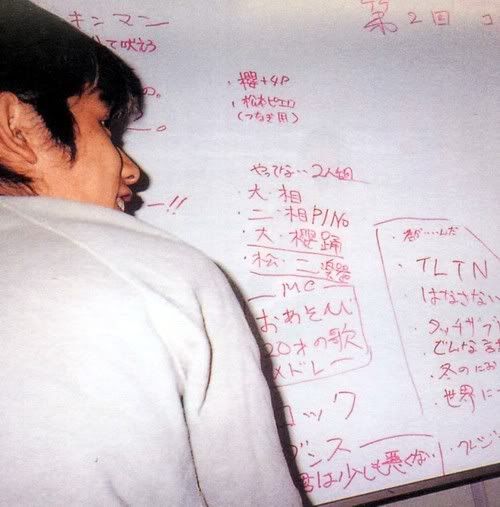 キンマン
て吠えろ
の。
!!
第2回 コ
・櫻+4P
・松本ピエロ
(つなぎ用)
やってない…2人組
・大・相
・二・相PINO
・大・櫻踊
・松・二楽器
MC
おあそび
20才の歌
メドレー
ロック
ダンス
君は少しも悪くない
・君が……んだ
・TLTN
はなさない
・タッチザブ
でんな言
・冬のにお
・世界に
・クレンジ